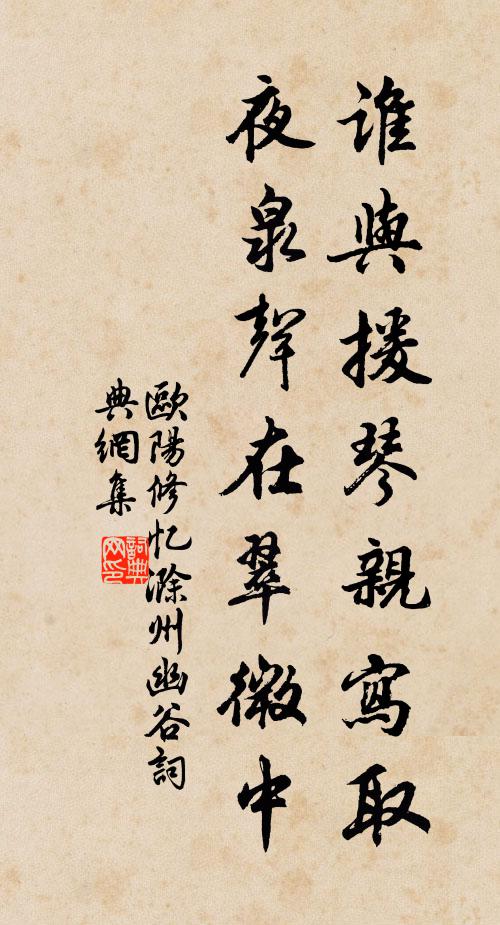 谁與援琴親寫取
夜泉聲在翠微中
歐陽修忆滁州幽谷詞
典網集
詞典
网印